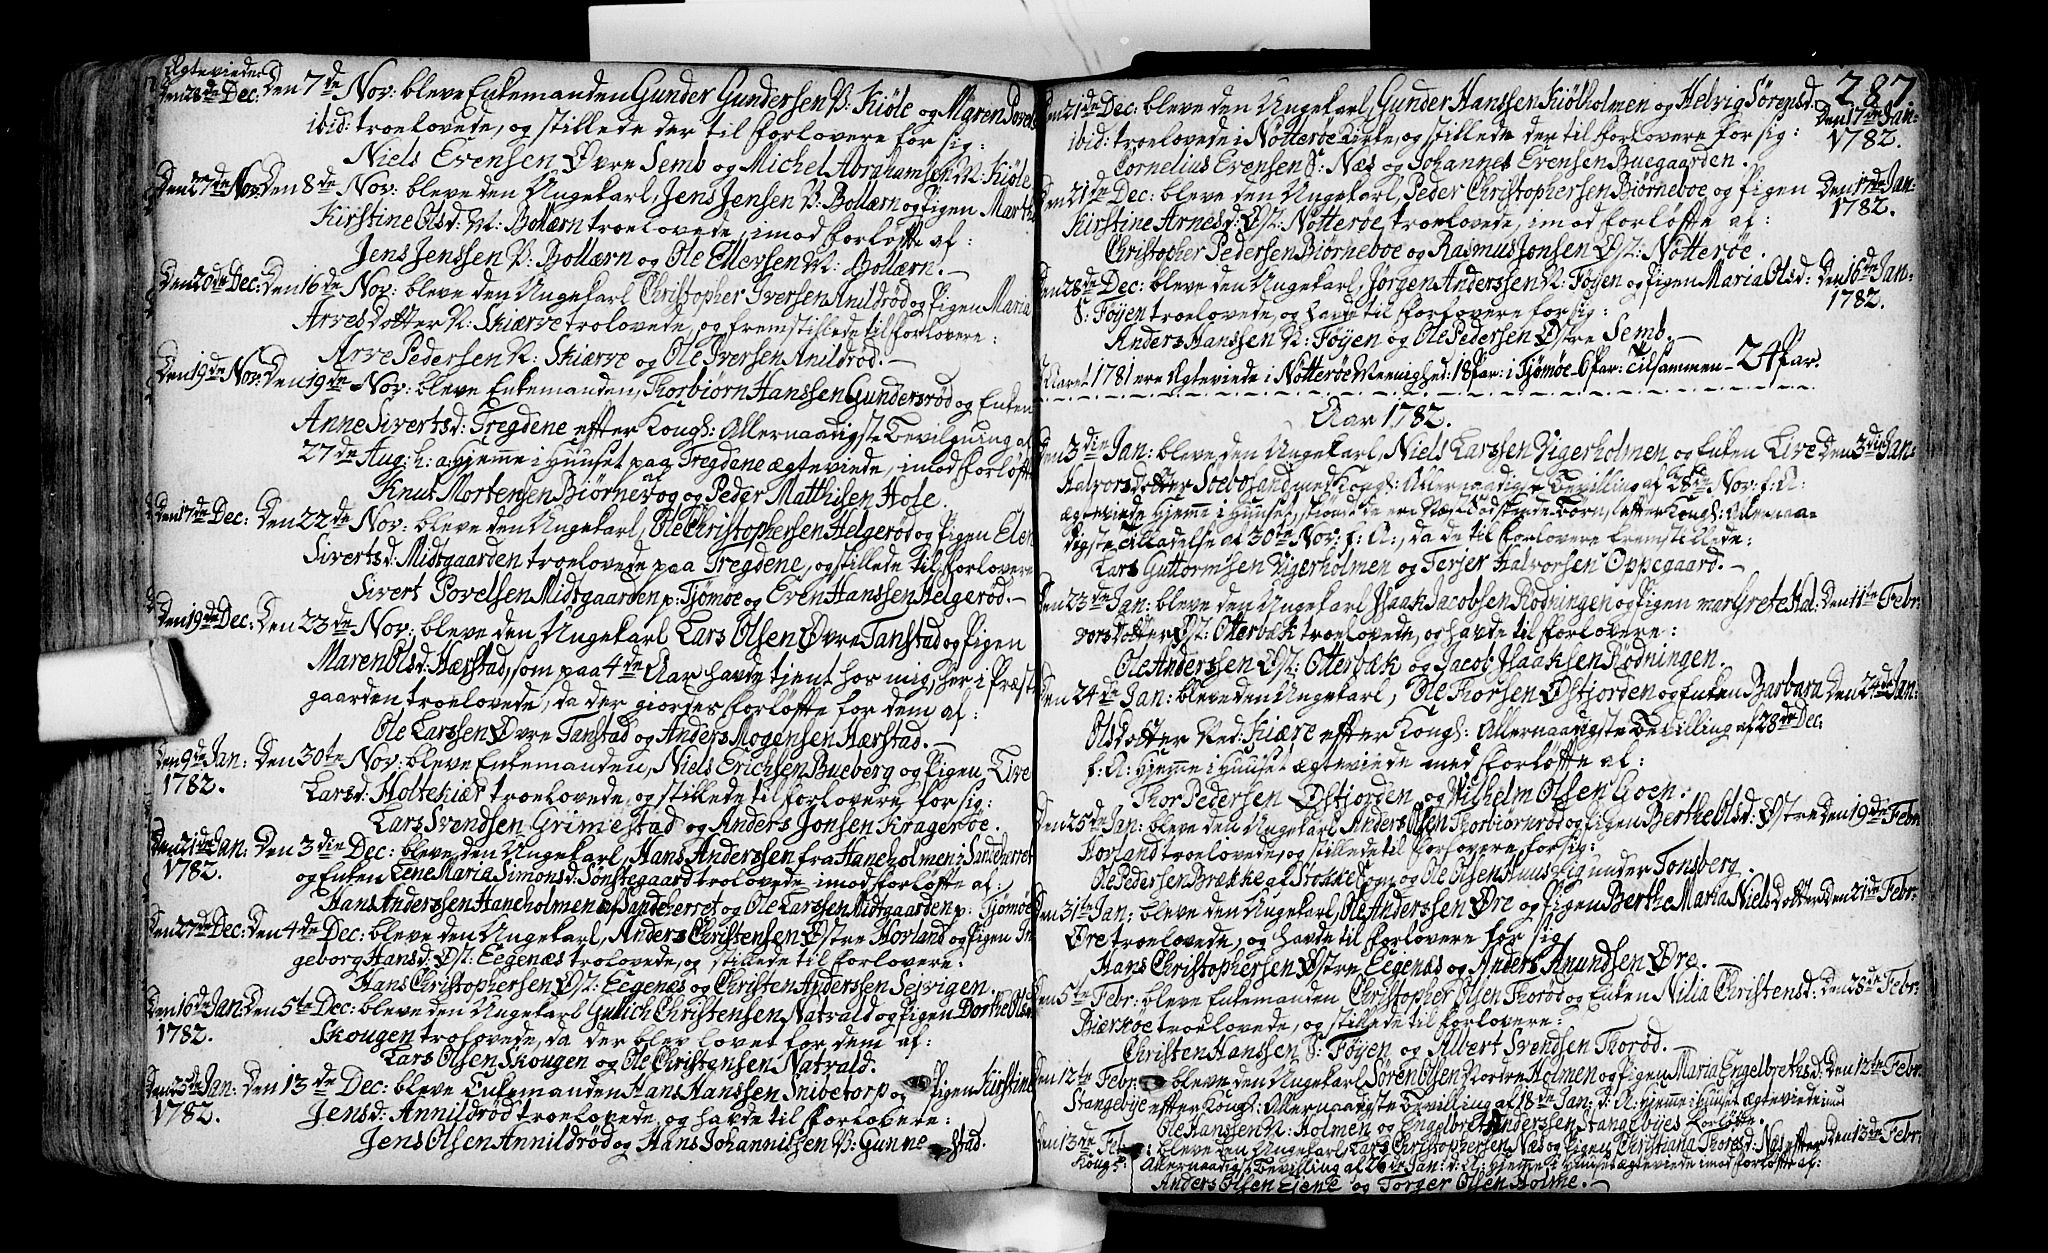 Ægteviede
Den 28de Dec: Den 7de Nov: bleve Enkemanden Gunder Gundersen V: Kiöle og Maren Povels
ibid: troelovede, og stillede der til forlovere for sig:
Niels Evensen Øvre Semb og Michel Abrahamsen N: Kiöle
Den 27de Nov: Den 8de Nov: bleve den Ungekarl, Jens Jensen V: Bollærn og Pigen Marthe
Kirstine Olsd: N: Bollærn troelovede, imod forløfte af:
Jens Jenssen V: Bollærn og Ole Ellersen N: Bollærn.
Den 20de Dec: Den 16de Nov: bleve den Ungekarl Christopher Iversen Anildrod og Pigen Maria
Arvesdotter N: Skiærve trolovede, og fremstillede til forlovere:
Arve Pedersen N: Skiærve og Ole Iversen Anildrod.
Den 19de Nov: Den 19de Nov: bleve Enkemanden, Thorbiørn Hanssen Gundersrød og Enken
Anne Sivertsd: Tregdene efter Kongl: Allernaadigste Bevilgning af
27de Aug: h: a: hjemme i Huuset paa Tregdene ægteviede, imod forløfte
af
Knut Mortensen Biørnevog og Peder Matthisen Hole.
Den 17de Dec: Den 22de Nov: bleve den Ungekarl, Ole Christophersen Helgerød og Pigen Elen
Sivertsd: Midtgaarden troelovede paa Tregdene, og stillede til forlovere
Sivert Povelsen Midtgaarden p: Tjömoe og Even Hanssen Helgerød.
Den 19de Dec: Den 23de Nov: bleve den Ungekarl Lars Olsen Øvre Tanstad og Pigen
Maren Olsd: Hærstad, som paa 4de Aar havde tjent hos mig, her i Præste
gaarden troelovede, da der giordes forløfte for dem af:
Ole Larssen Øvre Tanstad og Anders Mogensen Hærstad.
Den 9de Jan: Den 30te Nov: bleve Enkemanden, Niels Erichsen Bueberg og Pigen Live
1782. Larsd: Holtekiær troelovede, og stillede til forlovere, for sig:
Lars Svendsen Grimestad og Anders Jonsen Kragerøe.
Den 21de Jan: Den 3die Dec: bleve den Ungekarl, Hans Anderssen fra Haneholmen i Sandeherret
1782. og Enken Lene Maria Simonsd: Sönstegaard trolovede imod forløfte af:
Hans Anderssen Haneholmen af Sandeherret og Ole Larssen Midtgaarden p: Tjömøe
Den 27de Dec: Den 4de Dec: bleve den Ungekarl, Anders Christensen Østre Horland og Pigen In
geborg Hansd: Øst: Eegenæs trolovede, og stillede til forlovere:
Hans Christophersen Øst: Eegenæs og Christen Anderssen Seivigen.
Den 16de Jan: Den 5te Dec: bleve den Ungekarl Gullich Christensen Natvald og Pigen Dorthe Olsd:
1782. Skougen trolovede, da der blev lovet for dem af:
Lars Olsen Skougen og Ole Christensen Natvald.
Den 25de Jan: Den 13de Dec: bleve Enkemanden Hans Hanssen Snibetorp og Pigen Kirstine
1782. Jensd: Annildrød troelovede, og havde til forlovere:
Jens Olsen Annildrød og Hans Johannissen V: Gunnestad.
287.
Den 21de Dec: bleve den Ungekarl, Gunder Hanssen Kiölholmen og Helvig Sørensd: Den 17de Jan:
ibid: troelovede i Nötteröe Kirke, og stillede der til forlovere for sig: 1782.
Cornelius Evensen S: Næs og Johannes Evensen Buegaarden.
Den 21de Dec: bleve den Ungekarl, Peder Christophersen Biørneboe og Pigen Den 17de Jan:
Kirstine Arnesd: Øst: Nötteröe troelovede, imod forløfte af: 1782.
Christopher Pedersen Biørneboe og Rasmus Jonsen Øst: Nötteröe.
Den 28de Dec: bleve den Ungekarl, Jørgen Anderssen N: Föyen og Pigen Maria Olsd: Den 16de Jan:
S: Föyen troelovede, og havde til forlovere for sig: 1782.
Anders Hanssen N: Föyen og Ole Pedersen Østre Semb.
I Aaret 1781 ere Ægteviede i Nötteröe Meenighed: 18 Par: i Tjömöe 6 Par: Tilsammen 24 Par.
Aar 1782.
Den 3die Jan: bleve den Ungekarl, Niels Larssen Vigerholmen og Enken Live Den 3die Jan:
Halvorsdotter Söebosand med Kongl: Allernaadigste Bevilling af 28de Nov: f: A:
ægteviede hjemme i Huuset, skiønt de ere Næst Södskende-Börn, efter Kongl: Allernaa-
digste Tilladelse af 30te Nov: f: A:, da de til forlovere fremstillede:
Lars Guttormsen Vigerholmen og Terjer Halvorsen Oppegaard.
Den 23de Jan: bleve den Ungekarl Isaak Jacobsen Rødningen og Pigen Margrete Hal: Den 11te Febr:
vorsdotter Øst: Otterbæk troelovede, og havde til forlovere:
Ole Anderssen Øst: Otterbæk og Jacob Isaaksen Rødningen.
Den 24de Jan: bleve den Ungekarl, Ole Thorsen Østjorden og Enken Barbara Den 24de Jan:
Olsdotter Ned: Kiære efter Kongl: Allernaadigste Bevilling af 28de Dec:
f: A: hjemme i Huuset ægteviede med forløfte af:
Thor Pedersen Østjorden og Wilhelm Olsen Goen.
Den 25de Jan: bleve den Ungekarl Anders Olsen Thorbiørnrød og Pigen Berthe Olsd: Østre Den 19de Febr:
Horland troelovede, og stillede til forlovere for sig:
Ole Pedersen Brække af Stokke Sogn og Ole Olsen Huusvig under Tonsberg.
Den 31te Jan: bleve den Ungekarl, Ole Anderssen Øre og Pigen Berthe Maria Nielsdotter Den 21de Febr:
Øre troelovede, og havde til forlovere for sig
Hans Christophersen Østre Eegenæs og Anders Anundsen Øre.
Den 5te Febr: bleve Enkemanden Christopher Olsen Thorød og Enken Nilia Christensd: Den 28de Febr:
Biærköe troelovede, og stillede til forlovere:
Christen Hanssen S: Föyen og Albert Svendsen Thorød.
Den 12te Febr: bleve den Ungekarl Sören Olsen Nordre Holmen og Pigen Maria Engelbrethsd: Den 12te Febr:
Stangebÿe efter Kongl: Allernaadigste Bevilling af 18de Jan: d: A: hjemme i Huuset ægteviede imod
Ole Hanssen N: Holmen og Engelbret Anderssen Stangebÿes forløfte.
Den 13de Feb: bleve den Ungekarl Lars Christophersen Næs og Pigen Christiana Thoresd: Næs efter Den 13de Febr:
Kongl: Allernaadigste Bevilling af 26de Jan: d: A: hjemme i Huuset ægteviede imod forløfte af:
Anders Olsen Ejene og Torger Olsen Holme.